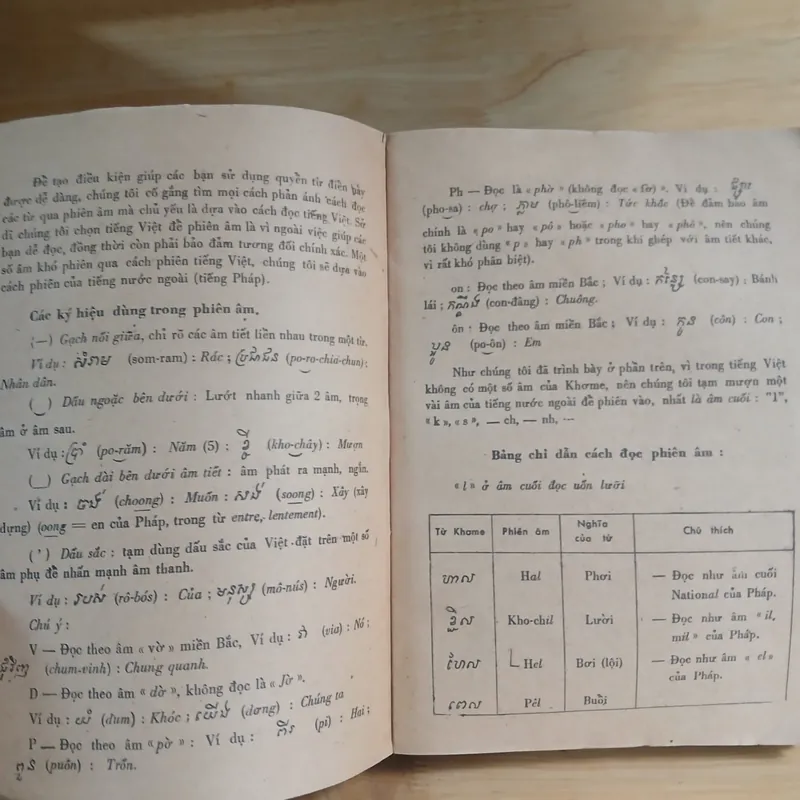 Để tạo điều kiện giúp các bạn sử dụng quyển từ điển này
được dễ dàng, chúng tôi cố gắng tìm mọi cách phản ánh cách đọc
các từ qua phiên âm mà chủ yếu là dựa vào cách đọc tiếng Việt. Sở
dĩ chúng tôi chọn tiếng Việt để phiên âm là vì ngoài việc giúp các
bạn dễ đọc, đồng thời còn phải bảo đảm tương đối chính xác. Một
số âm khó phiên qua cách phiên tiếng Việt, chúng tôi sẽ dựa vào
cách phiên của tiếng nước ngoài (tiếng Pháp).
Các ký hiệu dùng trong phiên âm.
(—) Gạch nối giữa, chỉ rõ các âm tiết liền nhau trong một từ.
Ví dụ : សំរាម (som-ram) : Rác ; ប្រជាជន (po-ro-chia-chun) :
Nhân dân.
(‿) Dấu ngoặc bên dưới : Lướt nhanh giữa 2 âm, trọng
âm ở âm sau.
Ví dụ : ប្រាំ (po-răm) : Năm (5) ; ខ្ចី (kho-chây) : Mượn
(_) Gạch dài bên dưới âm tiết : âm phát ra mạnh, ngắn.
Ví dụ : ចង់ (choong) : Muốn : សង់ (soong) : Xây (xây
dựng) (oong = en của Pháp, trong từ entre, lentement).
(') Dấu sắc : tạm dùng dấu sắc của Việt đặt trên một số
âm phụ để nhấn mạnh âm thanh.
Ví dụ : របស់ (rô-bós) : Của ; មនុស្ស (mô-nús) : Người.
Chú ý :
V — Đọc theo âm « vờ » miền Bắc, Ví dụ : វា (via) : Nó ;
ជុំវិញ (chum-vinh) : Chung quanh.
D — Đọc theo âm « dờ », không đọc là « Jờ ».
Ví dụ : យំ (dum) : Khóc ; យើង (dơng) : Chúng ta
P — Đọc theo âm « pờ » : Ví dụ : ពីរ (pi) : Hai ;
ពួន (puôn) : Trốn.
Ph — Đọc là « phờ » (không đọc « fờ) ». Ví dụ : ផ្សារ
(pho-sa) : chợ ; ភ្លាម (phô-liêm) : Tức khắc (Để đảm bảo âm
chính là « po » hay « pô » hoặc « pho » hay « phô », nên chúng
tôi không dùng « p » hay « ph » trong khi ghép với âm tiết khác,
vì rất khó phân biệt).
on : Đọc theo âm miền Bắc ; Ví dụ : កន្សៃ (con-say) : Bánh
lái ; កណ្ដឹង (con-đâng) : Chuông.
ôn : Đọc theo âm miền Bắc ; Ví dụ : កូន (côn) : Con ;
ប្អូន (po-ôn) : Em
Như chúng tôi đã trình bày ở phần trên, vì trong tiếng Việt
không có một số âm của Khơme, nên chúng tôi tạm mượn một
vài âm của tiếng nước ngoài để phiên vào, nhất là âm cuối : "l",
« k », « s », — ch, — nh, ...
Bảng chỉ dẫn cách đọc phiên âm :
« l » ở âm cuối đọc uốn lưỡi
Từ Khơme Phiên âm Nghĩa của từ Chú thích
ហាល Hal Phơi — Đọc như âm cuối
National của Pháp.
ខ្ជិល Kho-chil Lười — Đọc như âm « il,
mil » của Pháp.
ហែល Hel Bơi (lội) — Đọc như âm « el »
của Pháp.
ពេល Pêl Buổi